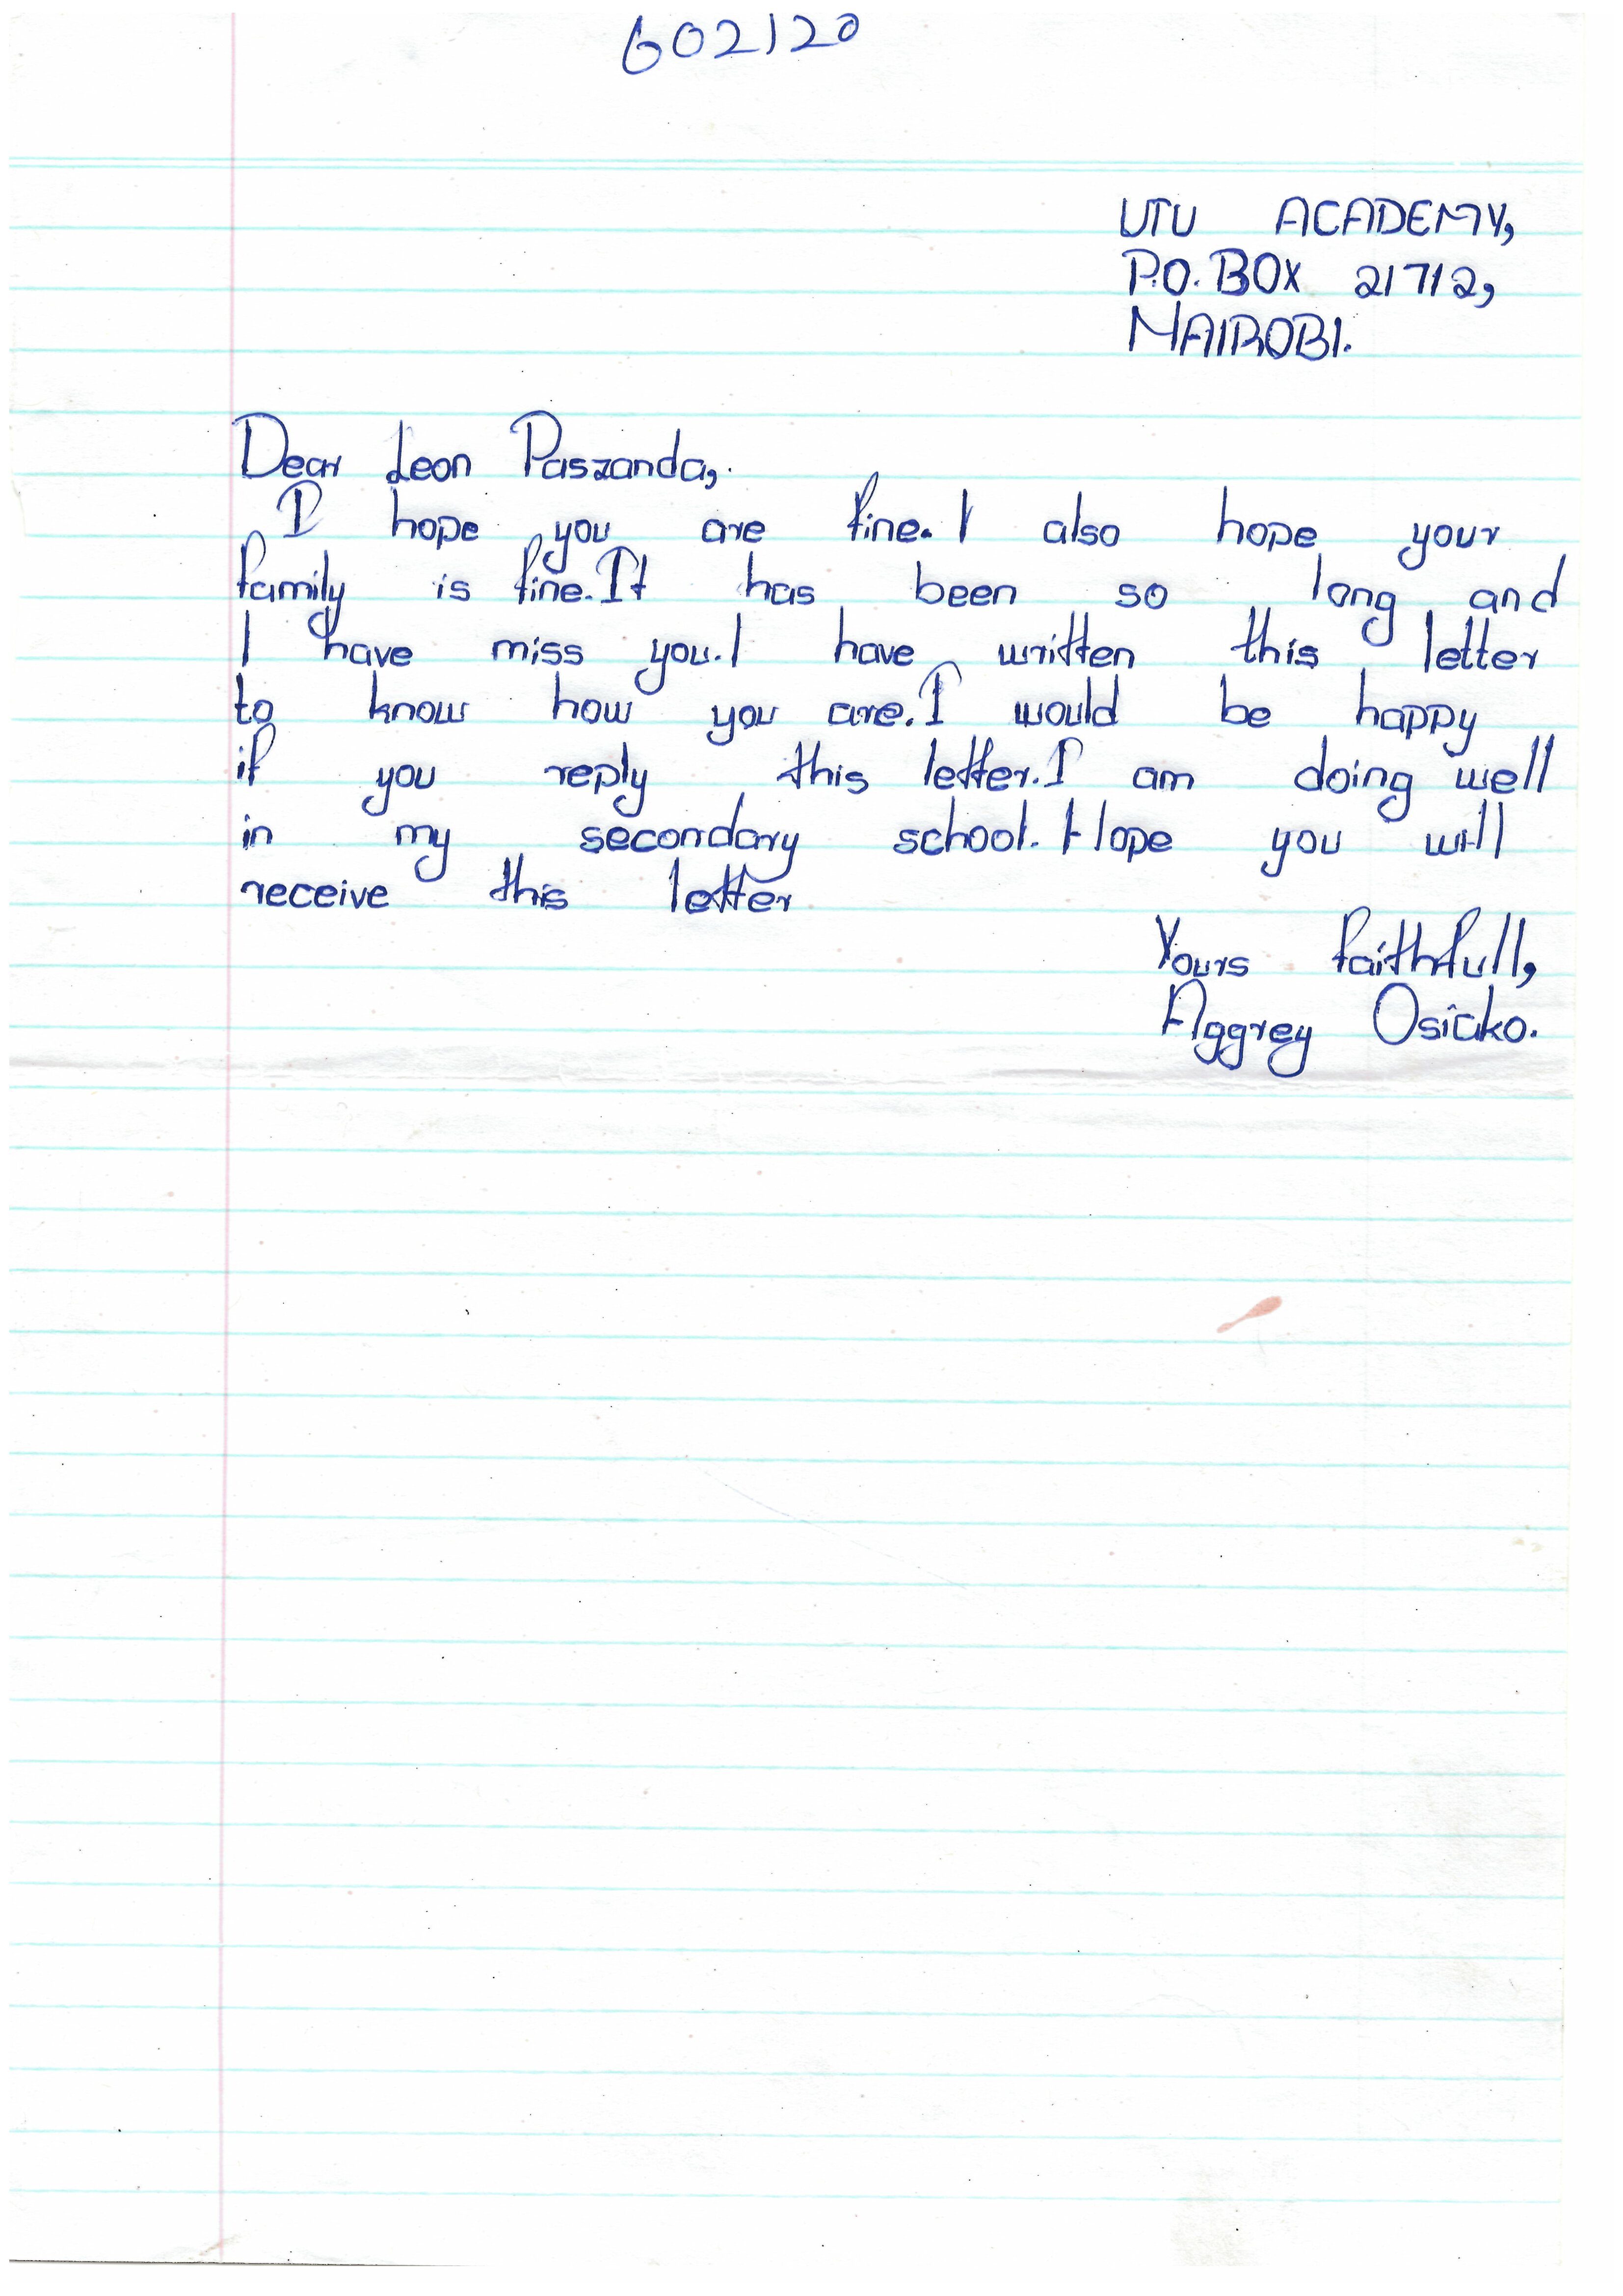 602120
UTU ACADEMY,
P.O. BOX 21712,
NAIROBI.
Dear Leon Paszanda,
I hope you are fine. I also hope your
family is fine. It has been so long and
I have miss you. I have written this letter
to know how you are. I would be happy
if you reply this letter. I am doing well
in my secondary school. Hope you will
receive this letter
Yours faithfull,
Aggrey